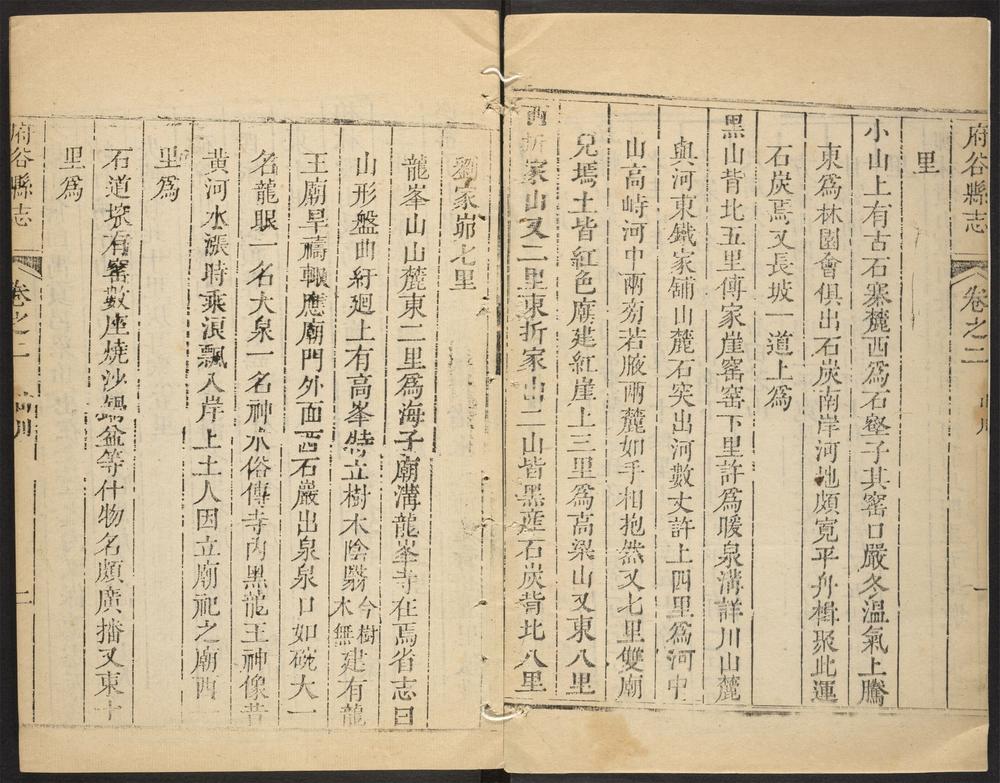 府谷縣志
卷之二
山川
一
里
小山上有古石寨麓西為石壑子其窰口嚴冬溫氣上騰
東為林園會俱出石炭南岸河地頗寬平舟楫聚此運
石炭焉又長坡一道上為
黑山背北五里傳家崖窰窰下里許為暖泉溝詳川山麓
與河東鐵家舖山麓石突出河數丈許上四里為河中
山高峙河中兩旁若腋兩麓如手相抱然又七里雙廟
兒墕土皆紅色廟建紅崖上三里為高梁山又東八里
西折家山又二里東折家山二山皆黑產石炭背北八里
劉家峁七里
龍峯山山麓東二里為海子廟溝龍峯寺在焉省志曰
山形盤曲紆廻上有高峯特立樹木陰翳今樹木無建有龍
王廟旱禱輒應廟門外面西石巖出泉泉口如碗大一
名龍眼一名大泉一名神水俗傳寺內黑龍王神像昔
黃河水漲時乘浪飄入岸上土人因立廟祀之廟西
里為
石道墕有窰數座燒沙鍋盆等什物名頗廣播又東十
里為
府谷縣志
卷之二
山川
二